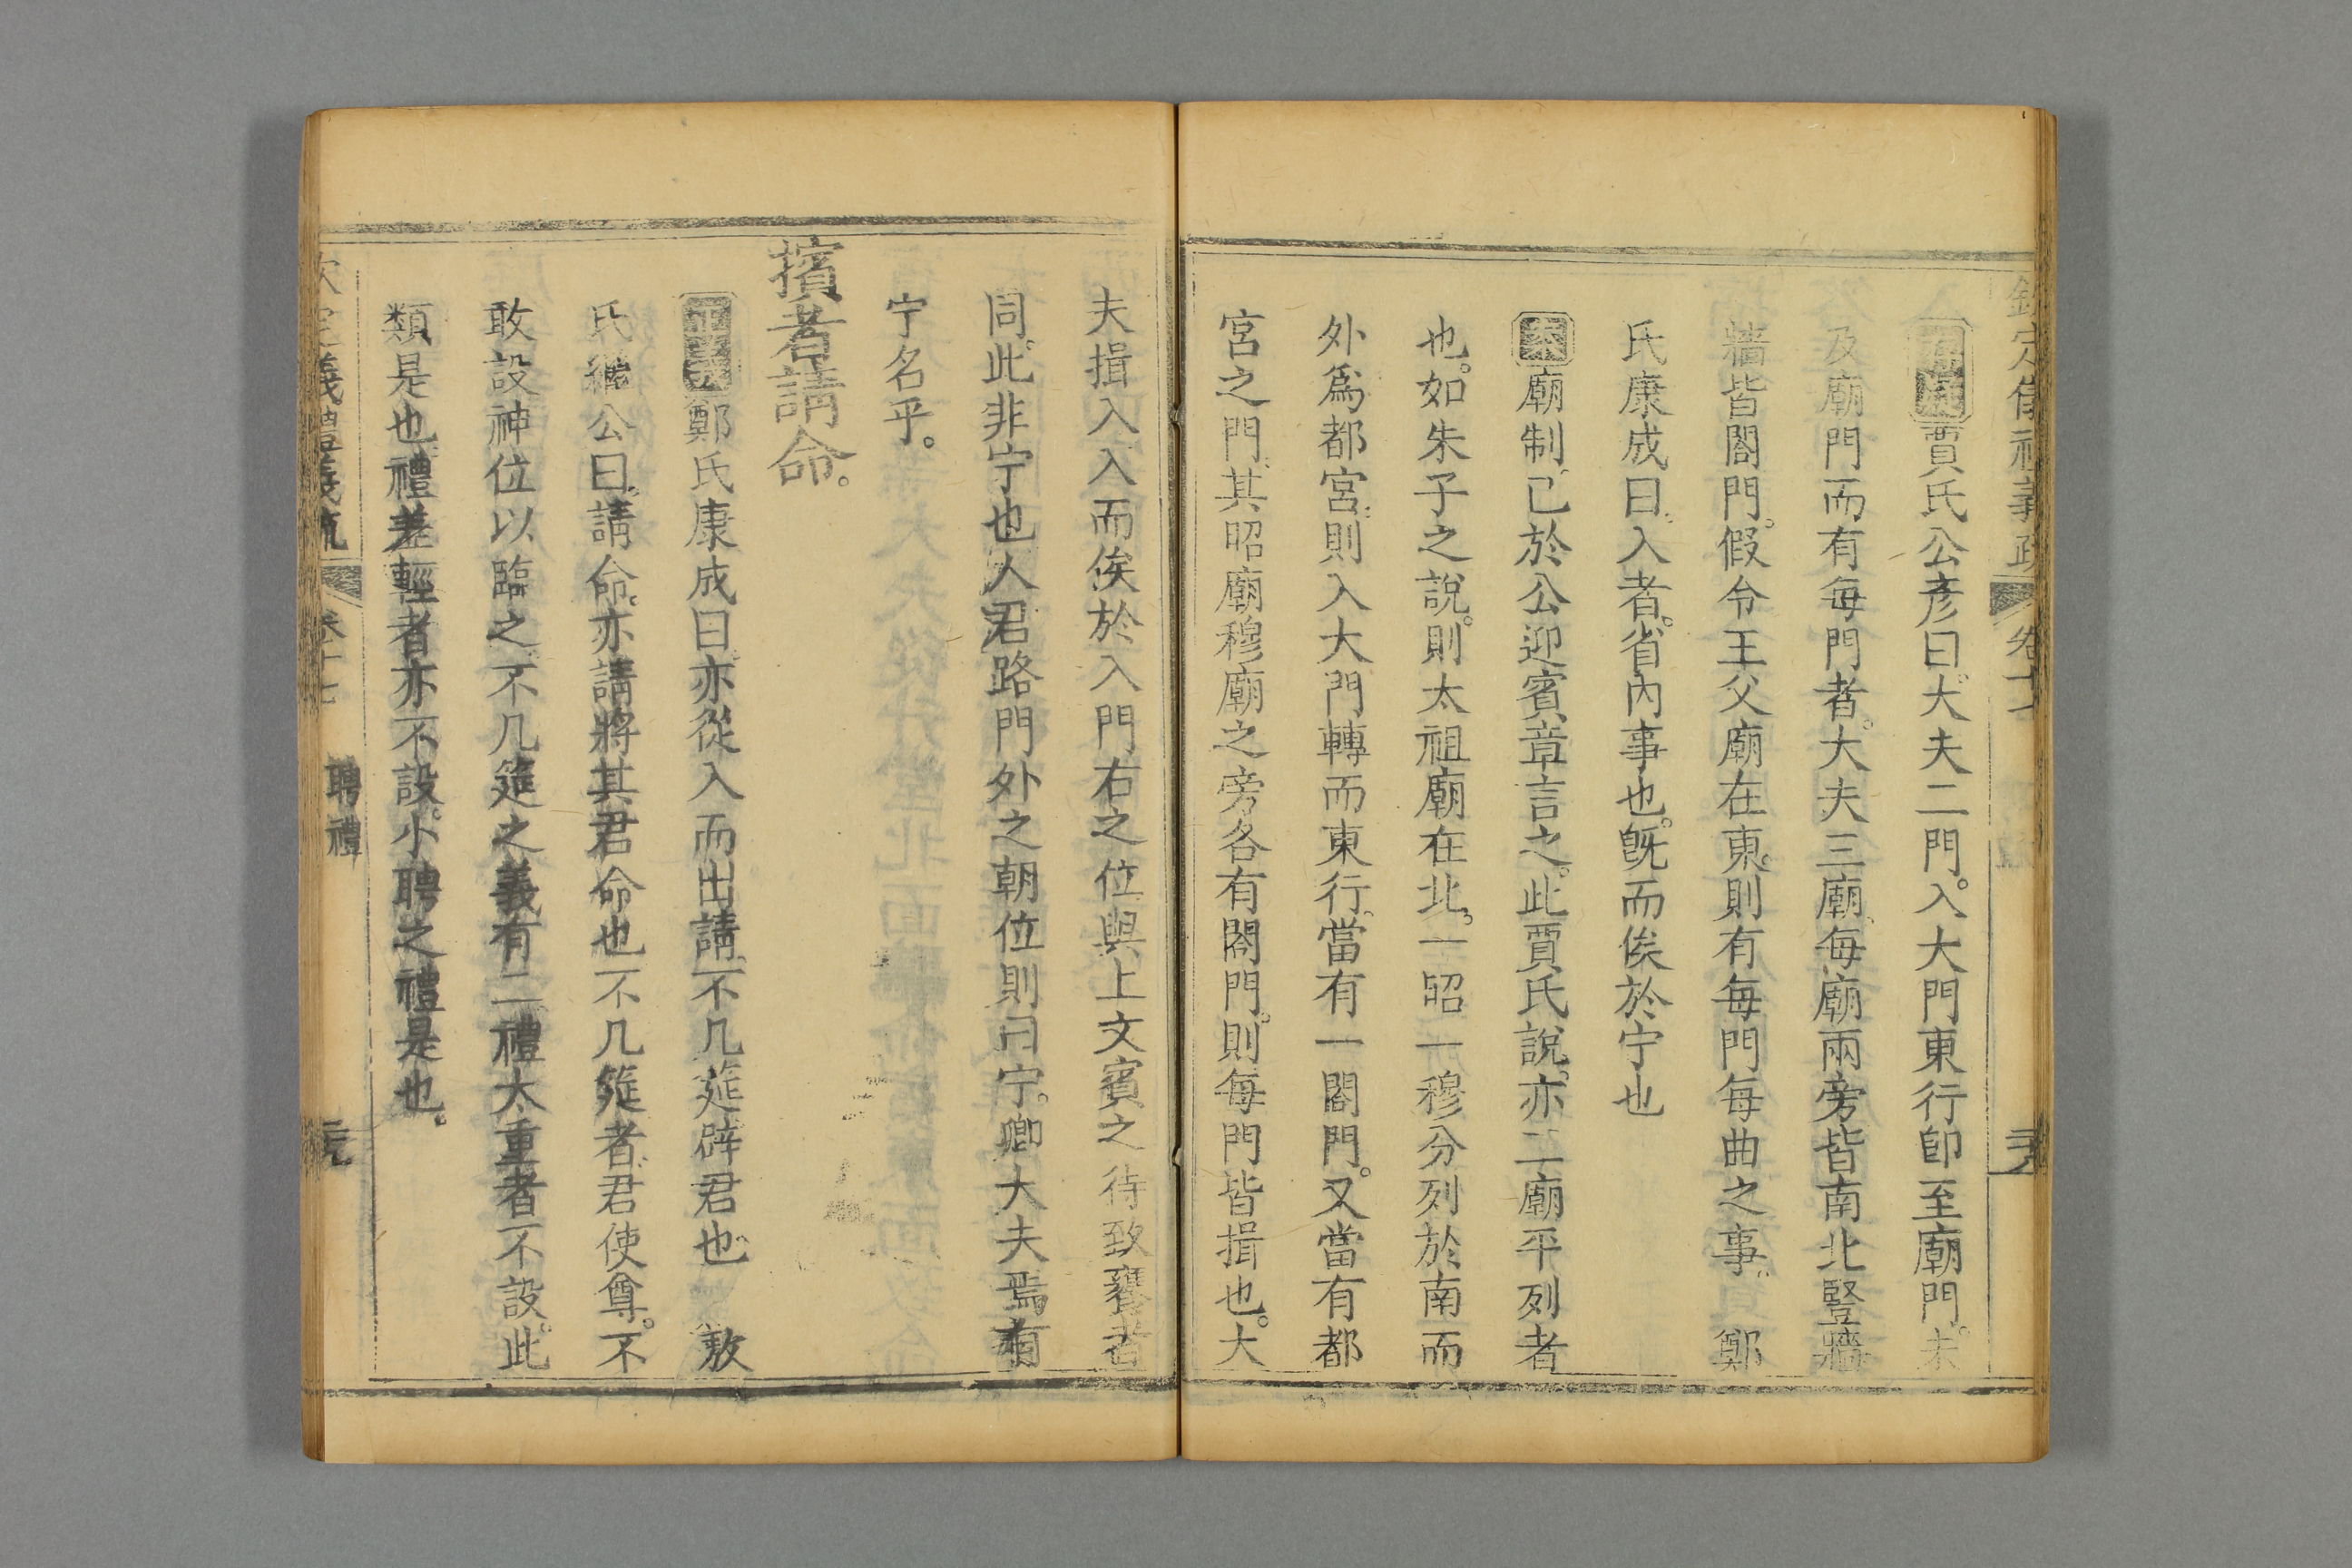 欽定儀禮義疏 卷十七
賈氏公彥曰大夫二門入大門東行卽至廟門未
及廟門而有每門者大夫三廟每廟兩旁皆南北豎牆
牆皆閤門假令王父廟在東則有每門每曲之事 鄭
氏康成曰入者省內事也旣而俟於宁也
案廟制已於公迎賓章言之此賈氏說亦二廟平列者
也如朱子之說則太祖廟在北一昭一穆分列於南而
外爲都宮則入大門轉而東行當有一閤門又當有都
宮之門其昭廟穆廟之旁各有閤門則每門皆揖也大
夫揖入入而俟於入門右之位與上文賓之待致饔者
同此非宁也人君路門外之朝位則曰宁卿大夫焉有
宁名乎
擯者請命
正義鄭氏康成曰亦從入而出請不几筵辟君也 敖
氏繼公曰請命亦請將其君命也不几筵者君使尊不
敢設神位以臨之不几筵之義有二禮太重者不設此
類是也禮差輕者亦不設小聘之禮是也
欽定儀禮義疏 卷十七 聘禮